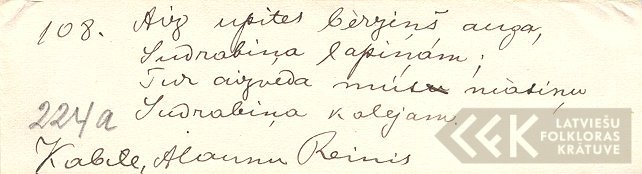 108. Aiz upites bērziņš auga,
Sudrabiņa lapiņām;
Tur aizveda mūsu māsiņu
224a Sudrabiņa kalējam.
Kabile, Alaunu Reinis
LATVIEŠU
FOLKLORAS
KRĀTUVE
LFK